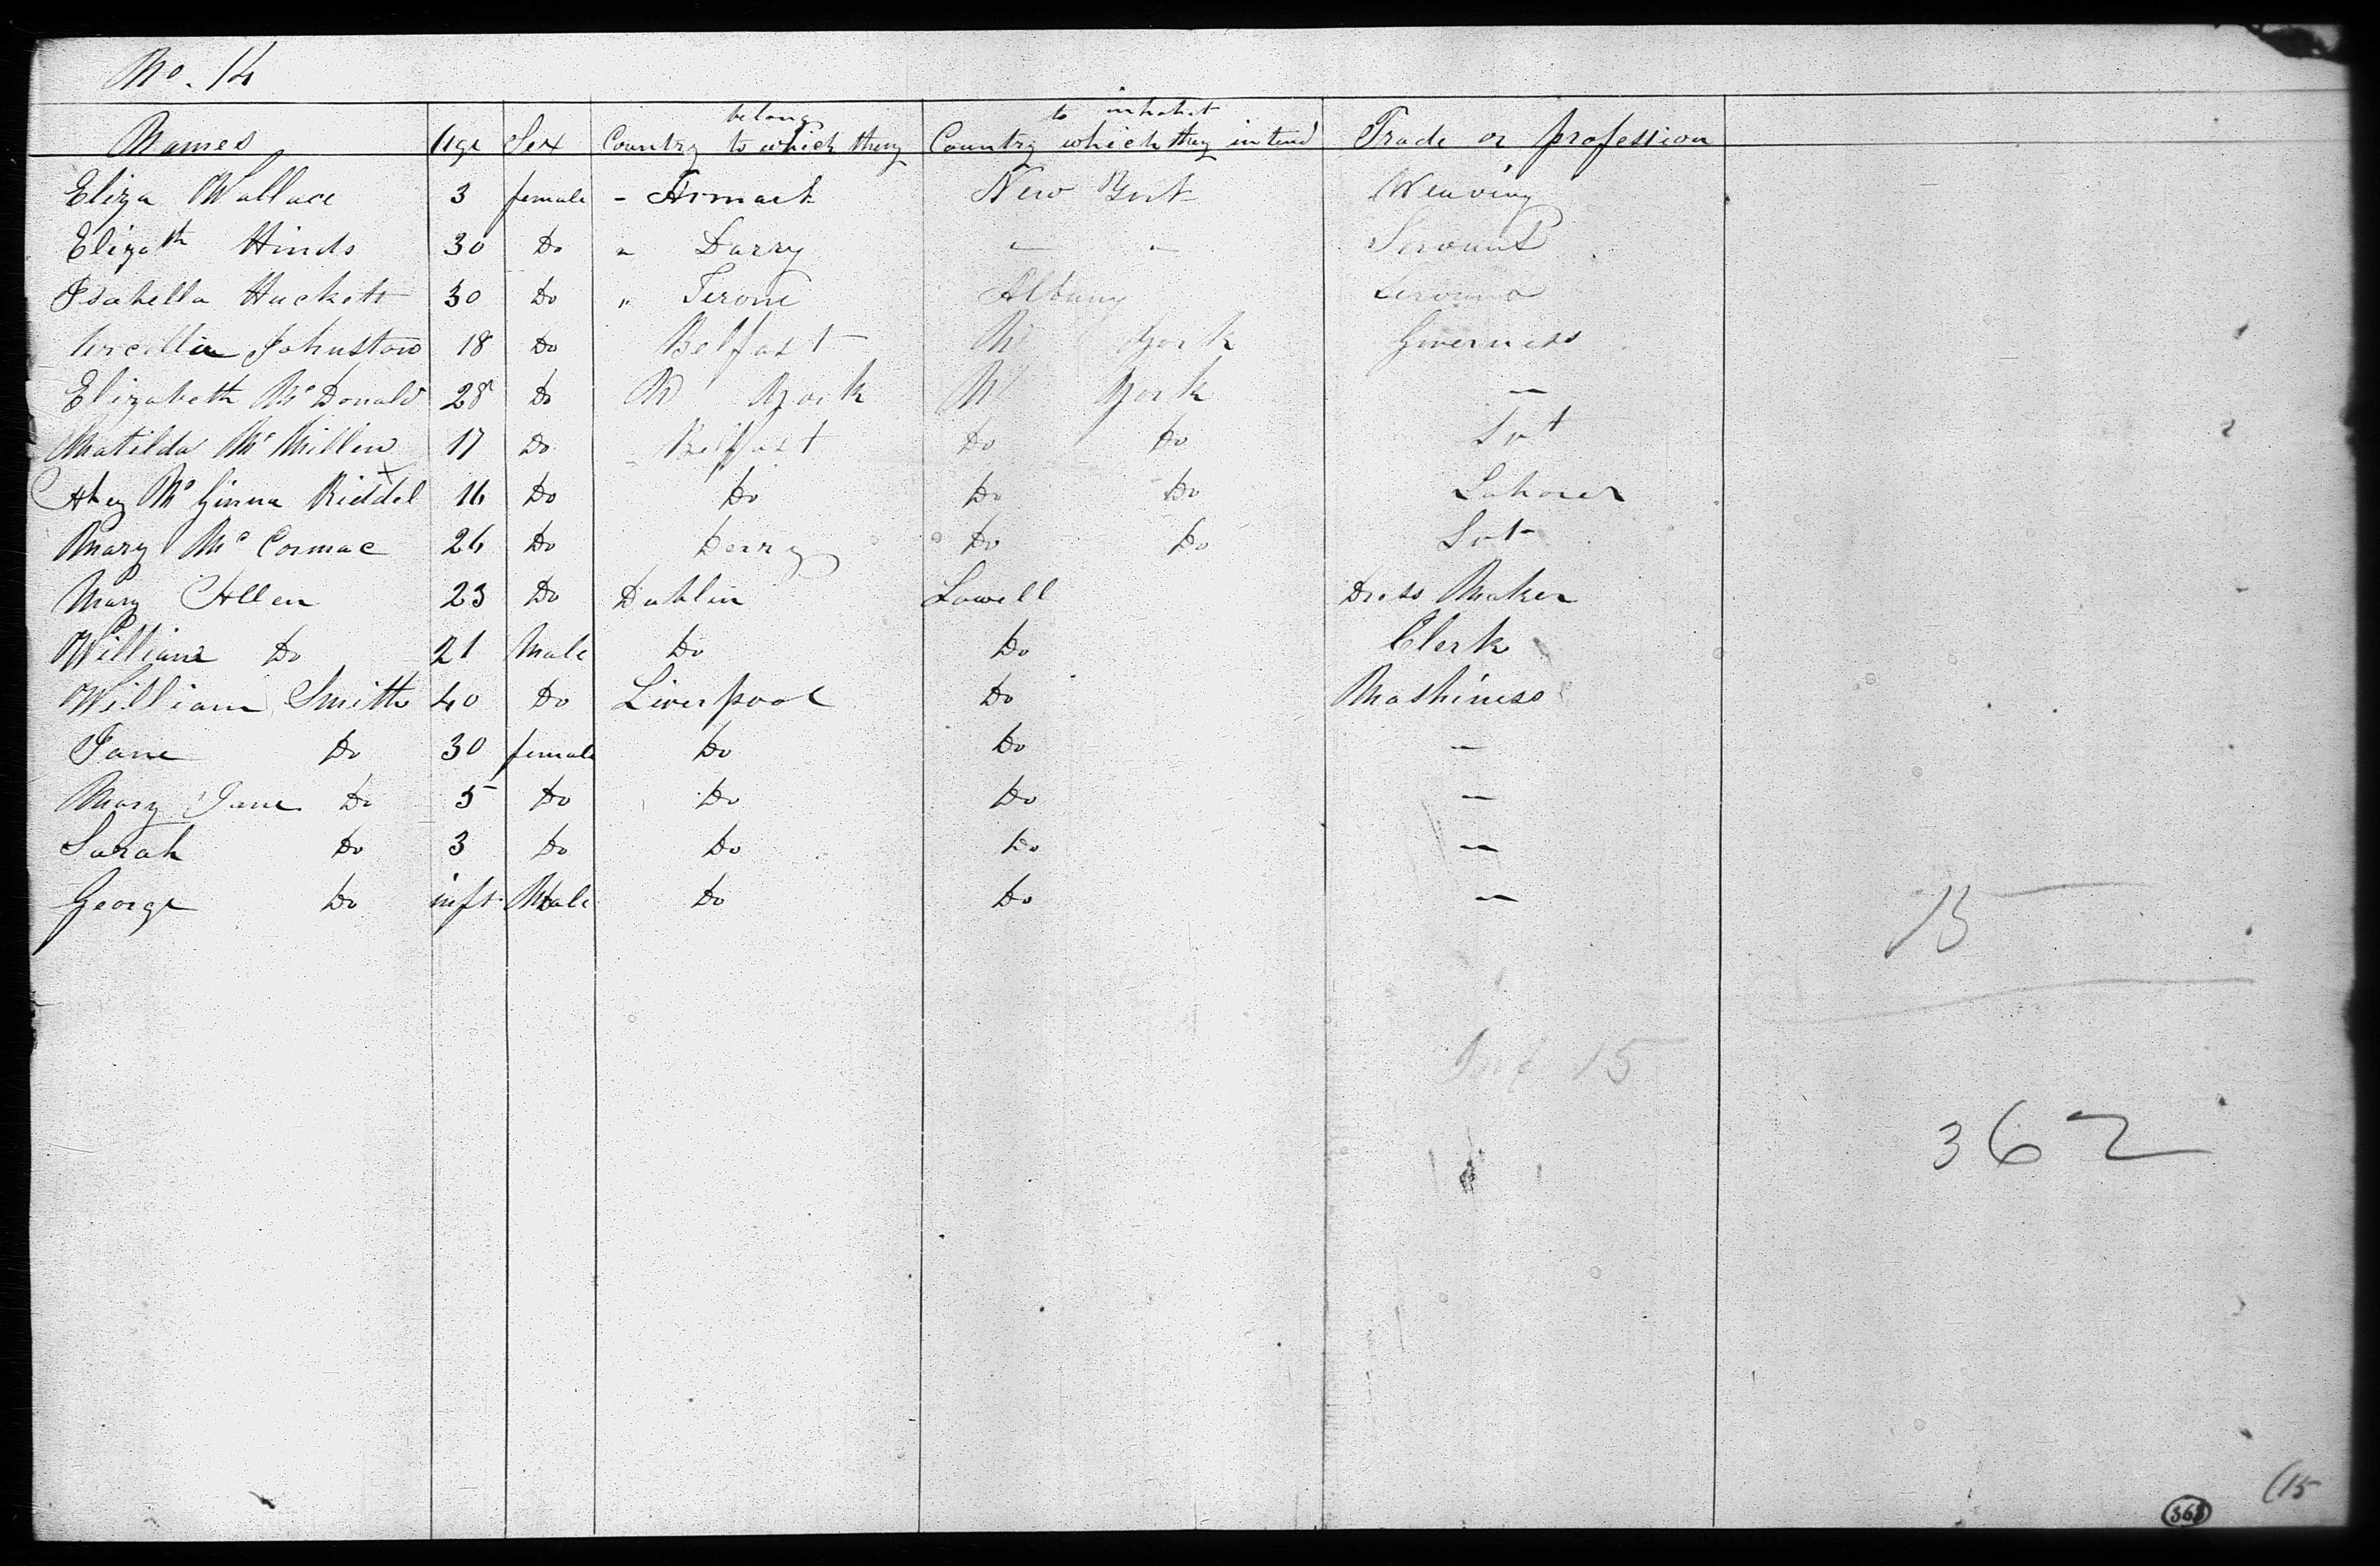 No. 14
Names Age Sex Country to which they belong Country which they intend to inhabit Trade or profession
Eliza Wallace 3 female - Armach New York Weaving
Elizath Hinds 30 Do " Darry " " Servant
Isabella Hackett 30 Do " Terone Albany
Johnston 18 Do Belfast N York Governess
Elizabeth McDonald 28 Do N York N York —
Matilda McMillen 17 Do " Belfast Do Do Svt
McGinna Riddel 16 Do Do Do Do Laborer
Mary McCormac 26 Do Derry Do Do Svt
Mary Allen 23 Do Dublin Lowell Dress Maker
William Do 21 Male Do Do Clerk
William Smith 40 Do Liverpool Do
Jane Do 30 female Do Do —
Mary Jane Do 5 Do Do Do —
Sarah Do 3 Do Do Do —
George Do inft. Male Do Do —
15
15
362
(15